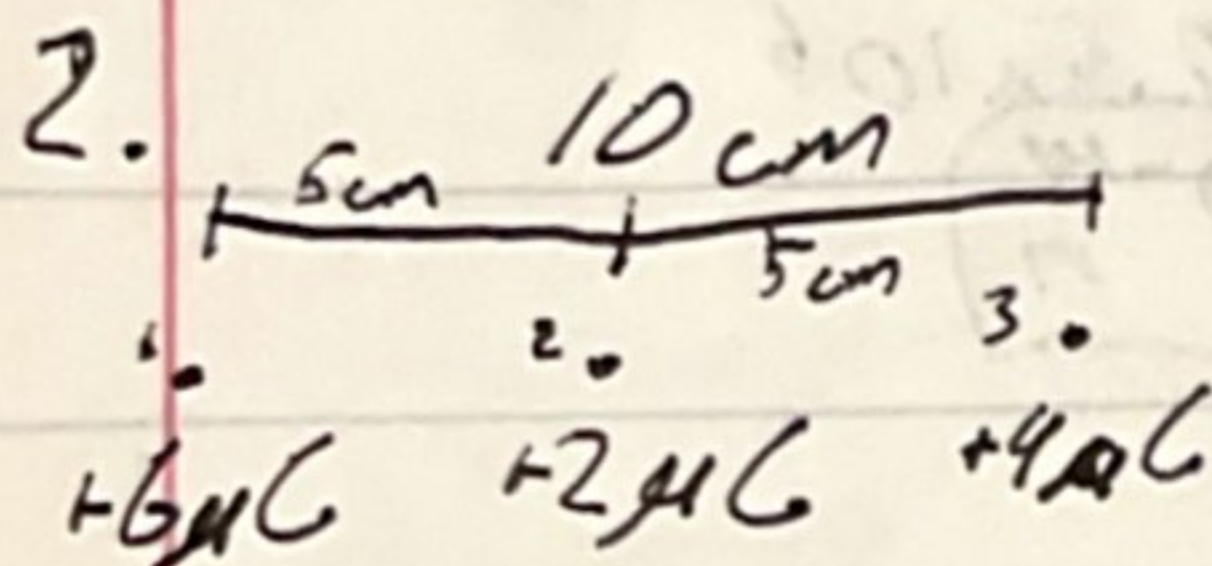 2.
10 cm
5cm
5cm
1. 2. 3.
+6μC +2μC +4μC